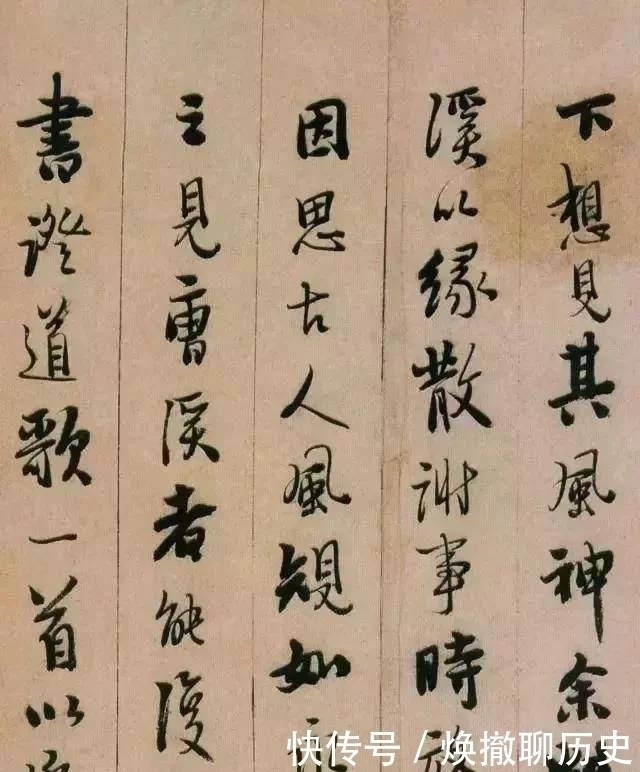 下想見其風神余
溪以緣散謝事時
因思古人風規如
之見曹溪者能復
書證道歌一首以
快传号 / 焕撤聊历史